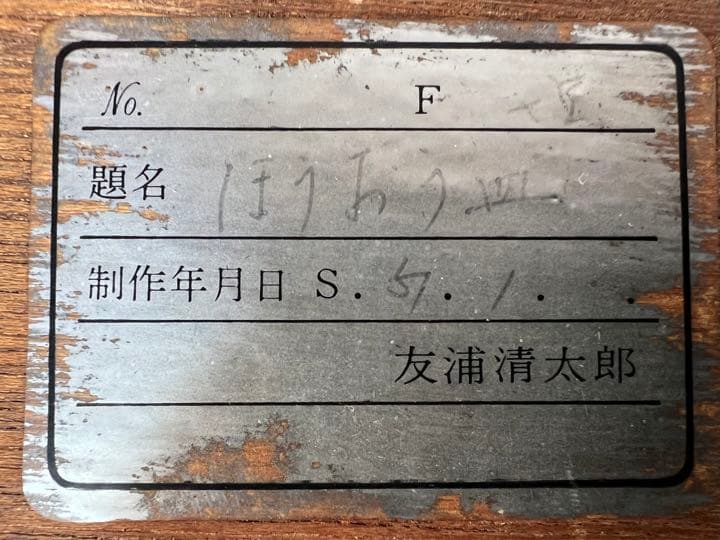 No. F
題名 ほうおう皿
制作年月日 S. 57. 1. .
友浦清太郎